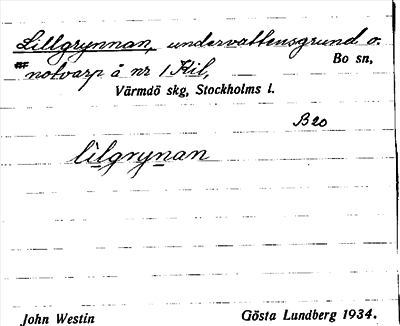 Lillgrynnan, undervattensgrund o.
notvarp å nr 1 Kil, Bo sn,
Värmdö skg, Stockholms l.
B 20
lilgrynan
John Westin Gösta Lundberg 1934.